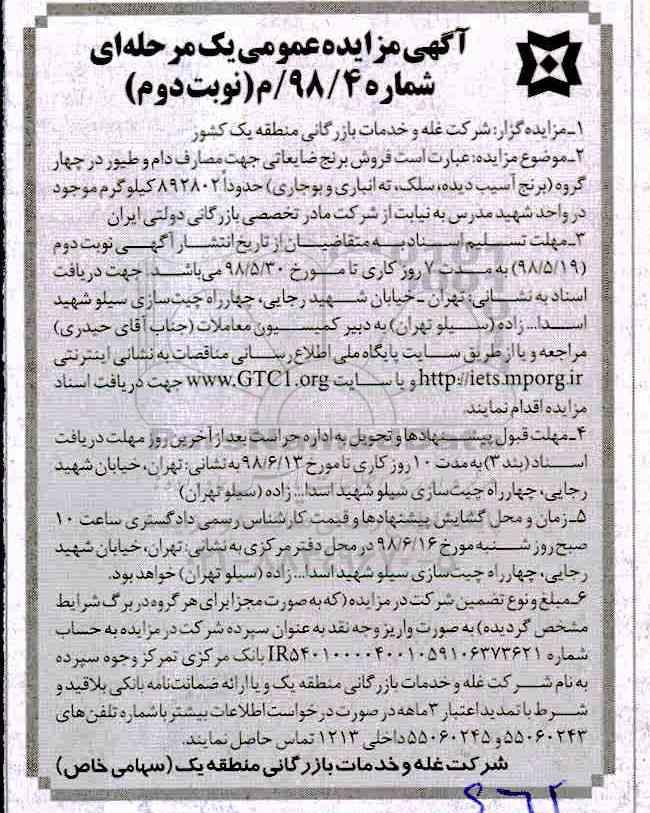 آگهی مزایده عمومی یک مرحله‌ای
شماره ۹۸/۴/م (نوبت دوم)
۱ـ مزایده گزار: شرکت غله و خدمات بازرگانی منطقه یک کشور
۲ـ موضوع مزایده: عبارت است فروش برنج ضایعاتی جهت مصارف دام و طیور در چهار
گروه (برنج آسیب دیده، سلک، ته انباری و بوجاری) حدوداً ۸۹۲۸۰۲ کیلوگرم موجود
در واحد شهید مدرس به نیابت از شرکت مادر تخصصی بازرگانی دولتی ایران
۳ـ مهلت تسلیم اسناد به متقاضیان از تاریخ انتشار آگهی نوبت دوم
(۹۸/۵/۱۹) به مدت ۷ روز کاری تا مورخ ۹۸/۵/۳۰ می‌باشد. جهت دریافت
اسناد به نشانی: تهران ـ خیابان شهید رجایی، چهارراه چیت‌سازی سیلو شهید
اسدا... زاده (سیلو تهران) به دبیر کمیسیون معاملات (جناب آقای حیدری)
مراجعه و یا از طریق سایت پایگاه ملی اطلاع رسانی مناقصات به نشانی اینترنتی
http://iets.mporg.ir و یا سایت www.GTC1.org جهت دریافت اسناد
مزایده اقدام نمایند.
۴ـ مهلت قبول پیشنهادها و تحویل به اداره حراست بعد از آخرین روز مهلت دریافت
اسناد (بند ۳) به مدت ۱۰ روز کاری تا مورخ ۹۸/۶/۱۳ به نشانی: تهران، خیابان شهید
رجایی، چهارراه چیت‌سازی سیلو شهید اسدا... زاده (سیلو تهران)
۵ـ زمان و محل گشایش پیشنهادها و قیمت کارشناس رسمی دادگستری ساعت ۱۰
صبح روز شنبه مورخ ۹۸/۶/۱۶ در محل دفتر مرکزی به نشانی: تهران، خیابان شهید
رجایی، چهارراه چیت‌سازی سیلو شهید اسدا... زاده (سیلو تهران) خواهد بود.
۶ـ مبلغ و نوع تضمین شرکت در مزایده (که به صورت مجزا برای هر گروه در برگ شرایط
مشخص گردیده) به صورت واریز وجه نقد به عنوان سپرده شرکت در مزایده به حساب
شماره IR۵۴۰۱۰۰۰۰۴۰۰۱۰۵۹۱۰۶۳۷۳۶۲۱ بانک مرکزی تمرکز وجوه سپرده
به نام شرکت غله و خدمات بازرگانی منطقه یک و یا ارائه ضمانت‌نامه بانکی بلاقید و
شرط با تمدید اعتبار ۳ ماهه در صورت درخواست اطلاعات بیشتر با شماره تلفن‌های
۵۵۰۶۰۲۴۳ و ۵۵۰۶۰۲۴۵ داخلی ۱۲۱۳ تماس حاصل نمایند.
شرکت غله و خدمات بازرگانی منطقه یک (سهامی خاص)